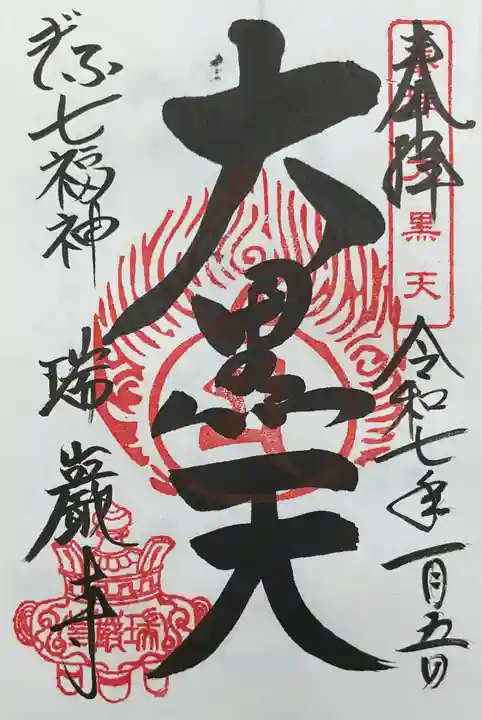 奉拝
黒天
令和七年一月五日
大黒天
ぎふ七福神
瑞巌寺
瑞巌寺